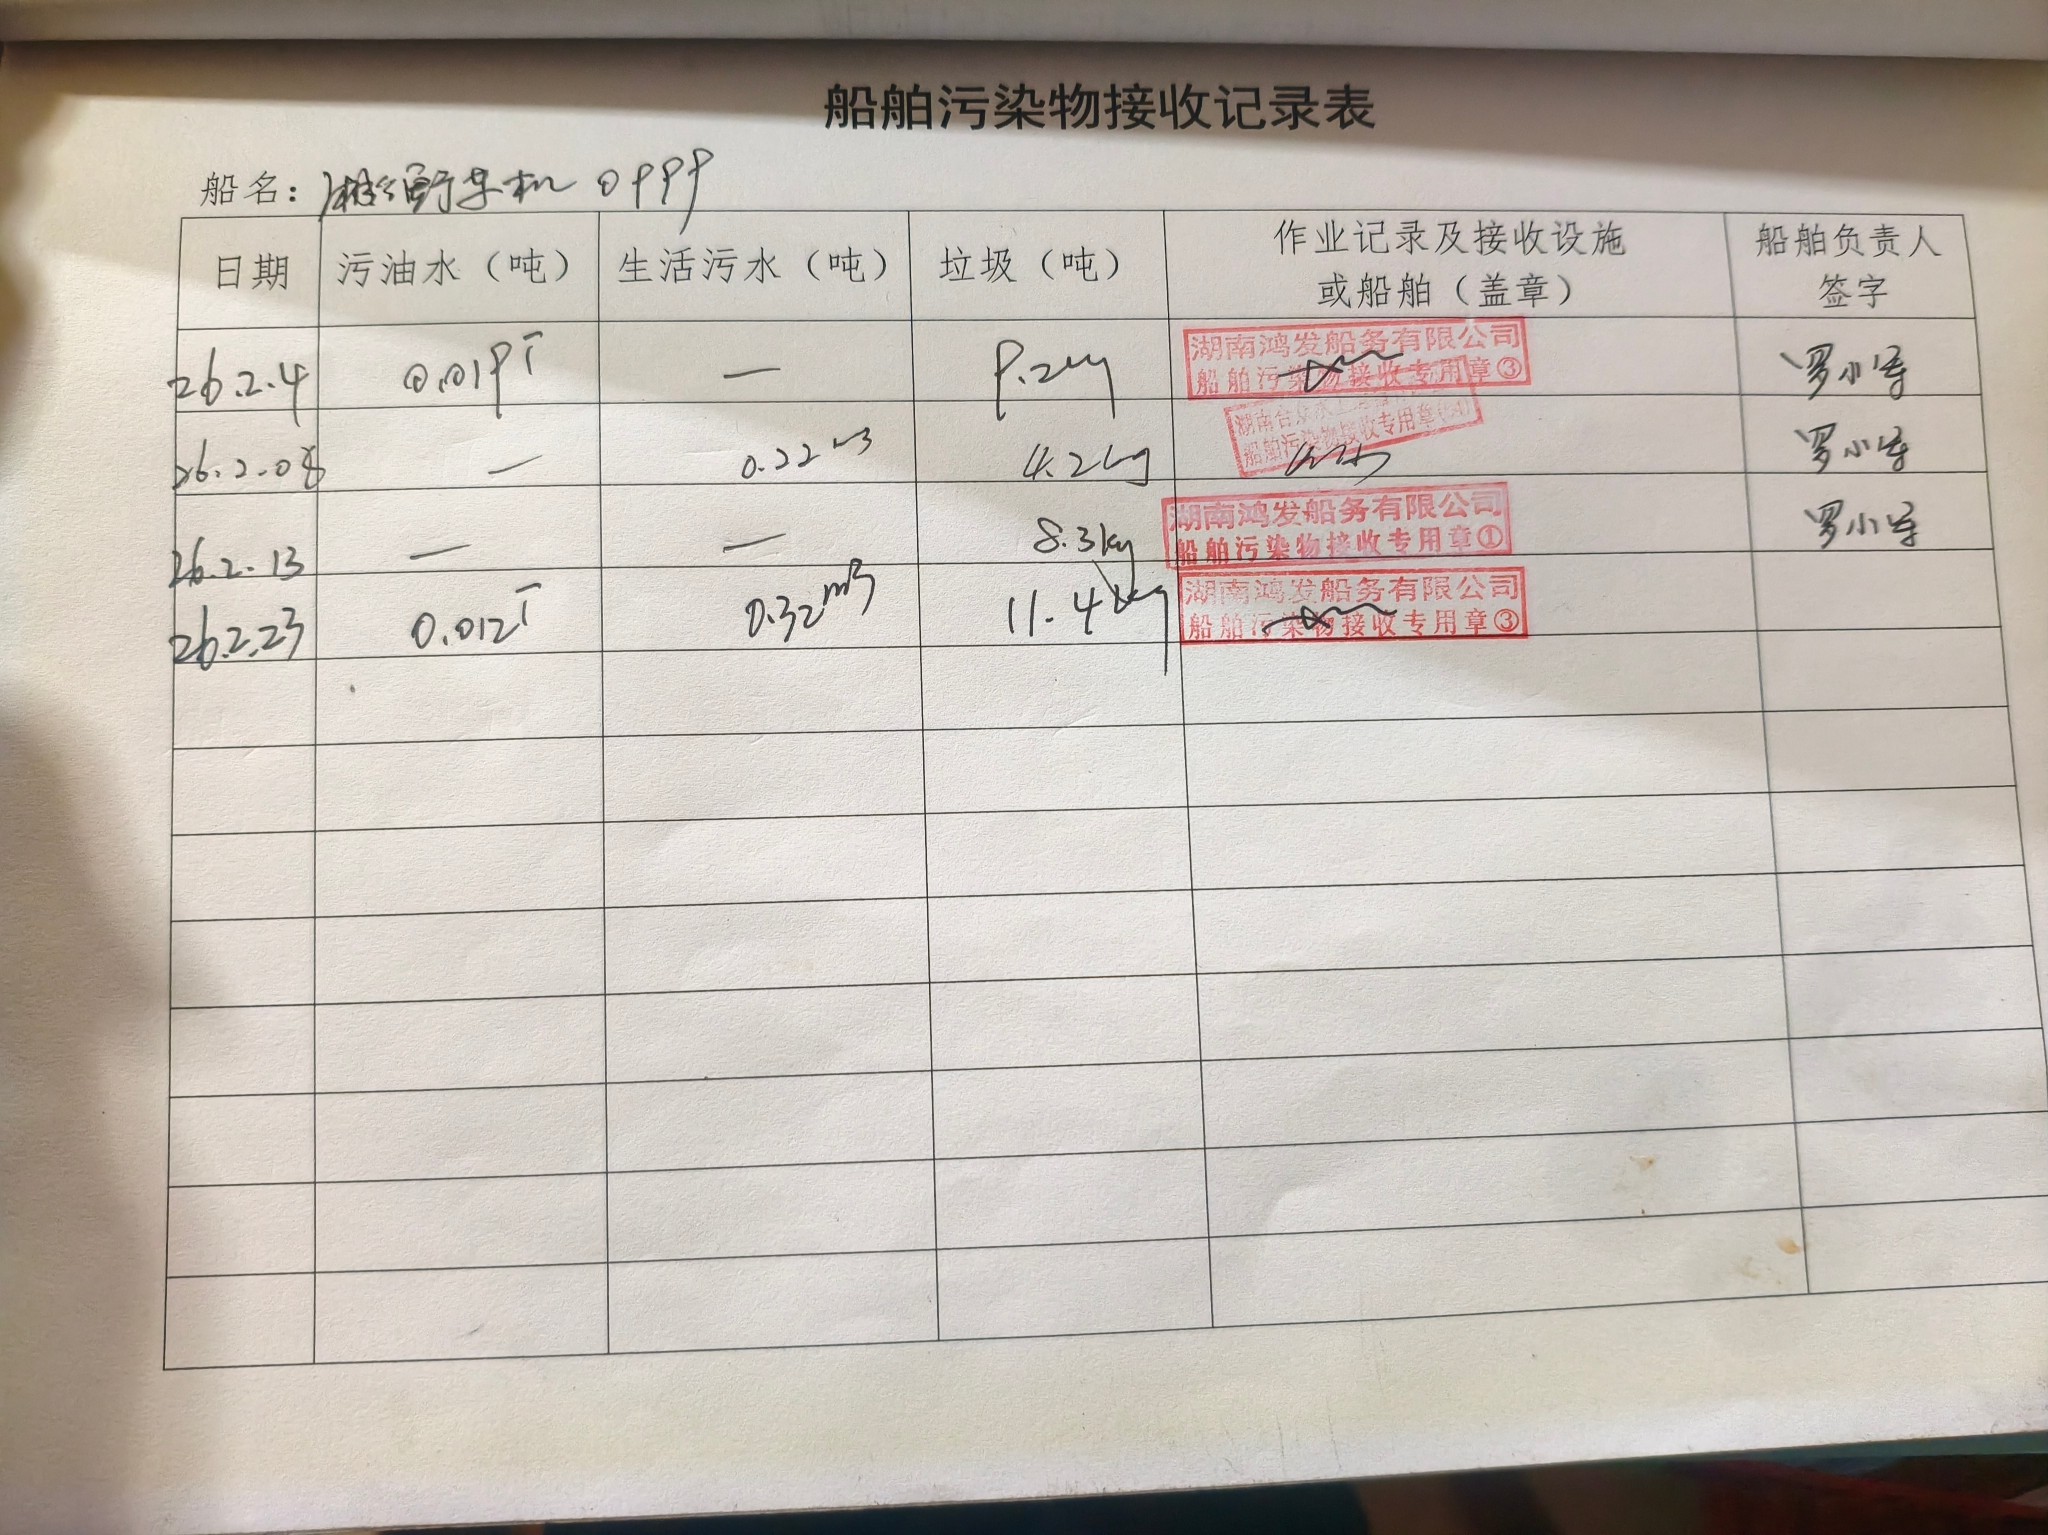 船舶污染物接收记录表
船名: 0999
日期 污油水（吨） 生活污水（吨） 垃圾（吨） 作业记录及接收设施或船舶（盖章） 船舶负责人签字
26.2.4 0.019T — 9.2kg 湖南鸿发船务有限公司 罗小军
船舶污染物接收专用章③
26.2.08 — 0.22m3 4.2kg 湖南 罗小军
船舶污染物接收专用章
26.2.13 — — 8.3kg 湖南鸿发船务有限公司 罗小军
船舶污染物接收专用章①
26.2.23 0.012T 0.32m3 11.4kg 湖南鸿发船务有限公司
船舶污染物接收专用章③